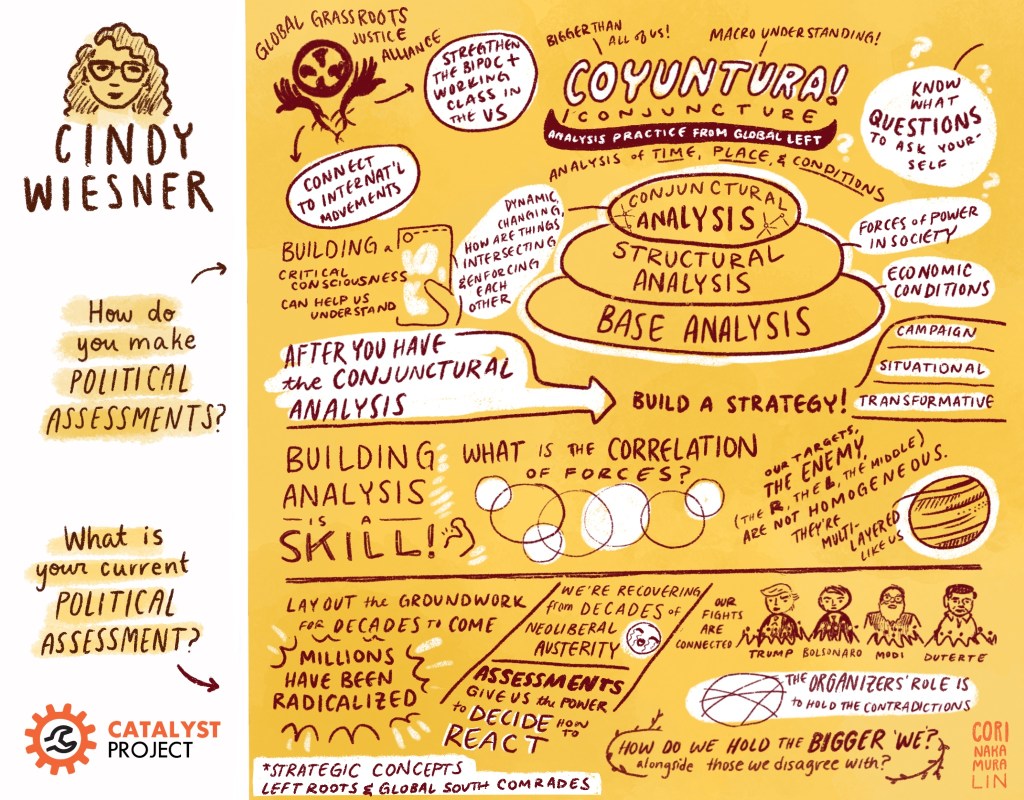 CINDY
WIESNER
How do
you make
POLITICAL
ASSESSMENTS?
What is
your current
POLITICAL
ASSESSMENT?
CATALYST
PROJECT
GLOBAL GRASSROOTS
JUSTICE
ALLIANCE
STREGTHEN
THE BIPOC +
WORKING
CLASS IN
the US
CONNECT
TO INTERNAT'L
MOVEMENTS
BIGGER THAN
ALL OF US!
MACRO UNDERSTANDING!
COYUNTURA!
/CONJUNCTURE
ANALYSIS PRACTICE FROM GLOBAL LEFT
ANALYSIS of TIME, PLACE, & CONDITIONS
KNOW
WHAT
QUESTIONS
TO ASK YOUR-
SELF
BUILDING a
CRITICAL
CONSCIOUSNESS
CAN HELP US
UNDERSTAND
DYNAMIC,
CHANGING,
HOW ARE THINGS
INTERSECTING
& ENFORCING
EACH
OTHER
CONJUNCTURAL
ANALYSIS
STRUCTURAL
ANALYSIS
BASE ANALYSIS
FORCES of POWER
IN SOCIETY
ECONOMIC
CONDITIONS
AFTER YOU HAVE
the CONJUNCTURAL
ANALYSIS
BUILD A STRATEGY!
CAMPAIGN
SITUATIONAL
TRANSFORMATIVE
BUILDING
ANALYSIS
IS A
SKILL!
WHAT IS THE CORRELATION
OF FORCES?
OUR TARGETS,
THE ENEMY,
(THE R, THE L, THE MIDDLE)
ARE NOT HOMOGENEOUS.
THEY'RE
MULTI-
LAYERED
LIKE US
LAY OUT the GROUNDWORK
FOR DECADES TO COME
MILLIONS
HAVE BEEN
RADICALIZED
WE'RE RECOVERING
from DECADES of
NEOLIBERAL
AUSTERITY
ASSESSMENTS
GIVE US the POWER
to DECIDE HOW
TO
REACT
OUR
FIGHTS
ARE
CONNECTED
TRUMP BOLSONARO MODI DUTERTE
THE ORGANIZERS' ROLE IS
to HOLD the CONTRADICTIONS
HOW DO WE HOLD THE BIGGER 'WE'?
alongside those WE DISAGREE WITH?
*STRATEGIC CONCEPTS
LEFT ROOTS & GLOBAL SOUTH COMRADES
CORI
NAKA
MURA
LIN